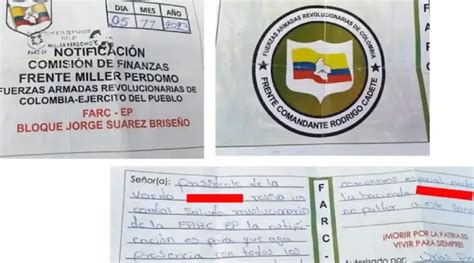 DIA MES AÑO
05 11 2023
MILLER PERDOMO
FARC-EP
NOTIFICACIÓN
COMISIÓN DE FINANZAS
FRENTE MILLER PERDOMO
FUERZAS ARMADAS REVOLUCIONARIAS DE
COLOMBIA-EJERCITO DEL PUEBLO
FARC - EP
BLOQUE JORGE SUÁREZ BRISEÑO
FUERZAS ARMADAS REVOLUCIONARIAS DE COLOMBIA
FRENTE COMANDANTE RODRIGO CADETE
Señor(a): Presidente de la
Vereda
cordial saludo revolucionario
de la FARC EP la notifi
cación es para que aga
presencia con todos los
FARC-
comuneros especial
la hacienda
no faltar a este
¡MORIR POR LA PATRIA ES
VIVIR PARA SIEMPRE!
Autorizado por: